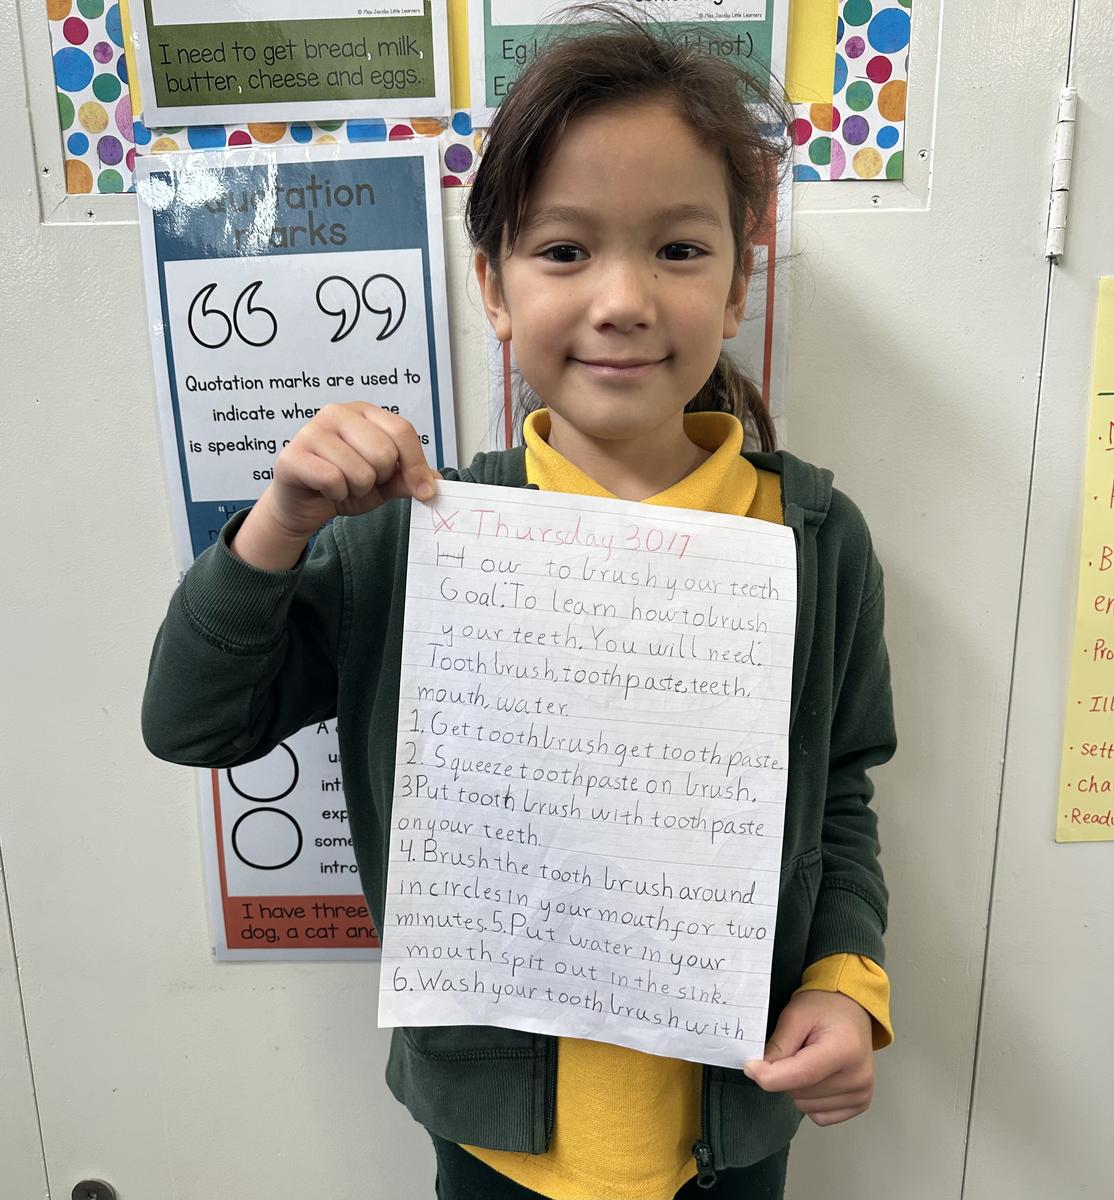 © Miss Jacobs Little Learners
I need to get bread, milk,
butter, cheese and eggs.
© Miss Jacobs Little Learners
Eg
not)
Quotation
marks
“ ”
Quotation marks are used to
indicate
is speaking
Thursday 30/7
How to brush your teeth
Goal: To learn how to brush
your teeth. You will need:
Tooth brush, toothpaste, teeth,
mouth, water.
1. Get toothbrush get tooth paste.
2. Squeeze toothpaste on brush.
3 Put tooth brush with toothpaste
on your teeth.
4. Brush the tooth brush around
in circles in your mouth for two
minutes. 5. Put water in your
mouth spit out in the sink.
6. Wash your tooth brush with
I have three
dog, a cat